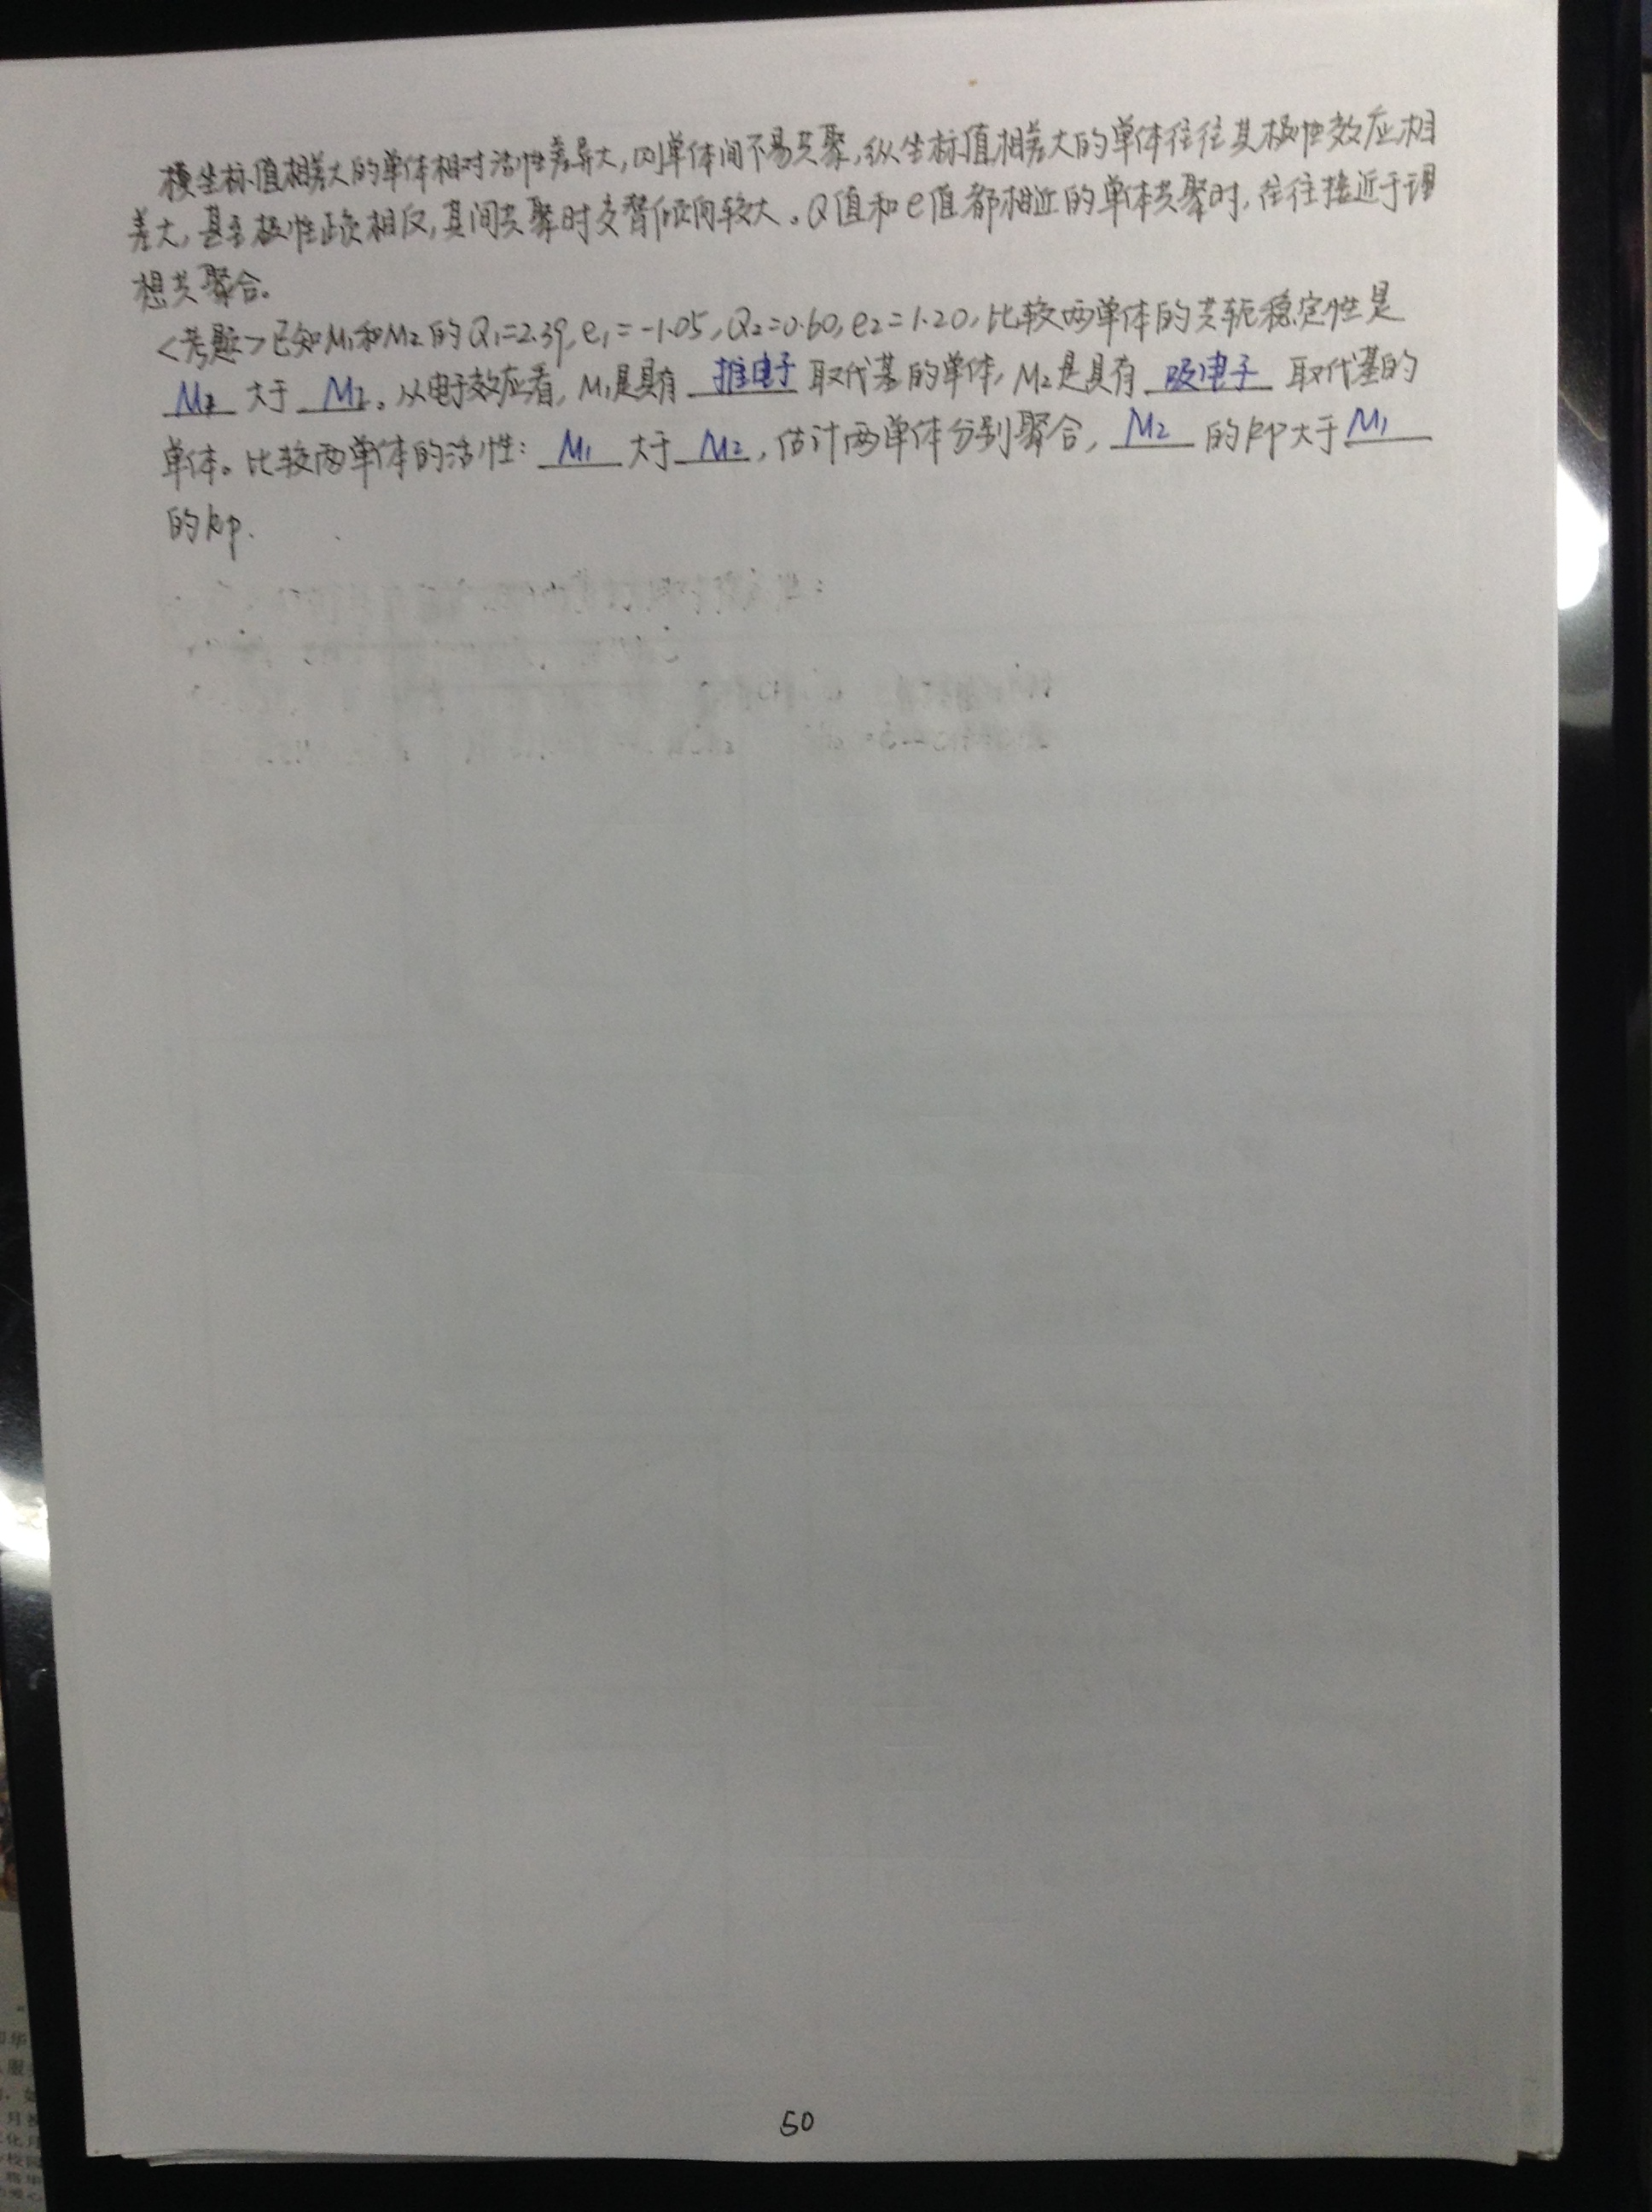 横坐标值相差大的单体相对活性差异大,则单体间不易共聚,纵坐标值相差大的单体往往其极性效应相
差大,甚至极性正负相反,其间共聚时交替倾向较大。Q值和e值都相近的单体共聚时,往往接近于理
想共聚合。
<考题>已知M₁和M₂的Q₁=2.39,e₁=-1.05,Q₂=0.60,e₂=1.20,比较两单体的共轭稳定性是
大于 M₂。从电子效应看,M₁是具有 推电子 取代基的单体,M₂是具有 吸电子 取代基的
单体。比较两单体的活性: M₁ 大于 M₂,估计两单体分别聚合, M₂ 的kp大于 M₁
的kp.
50